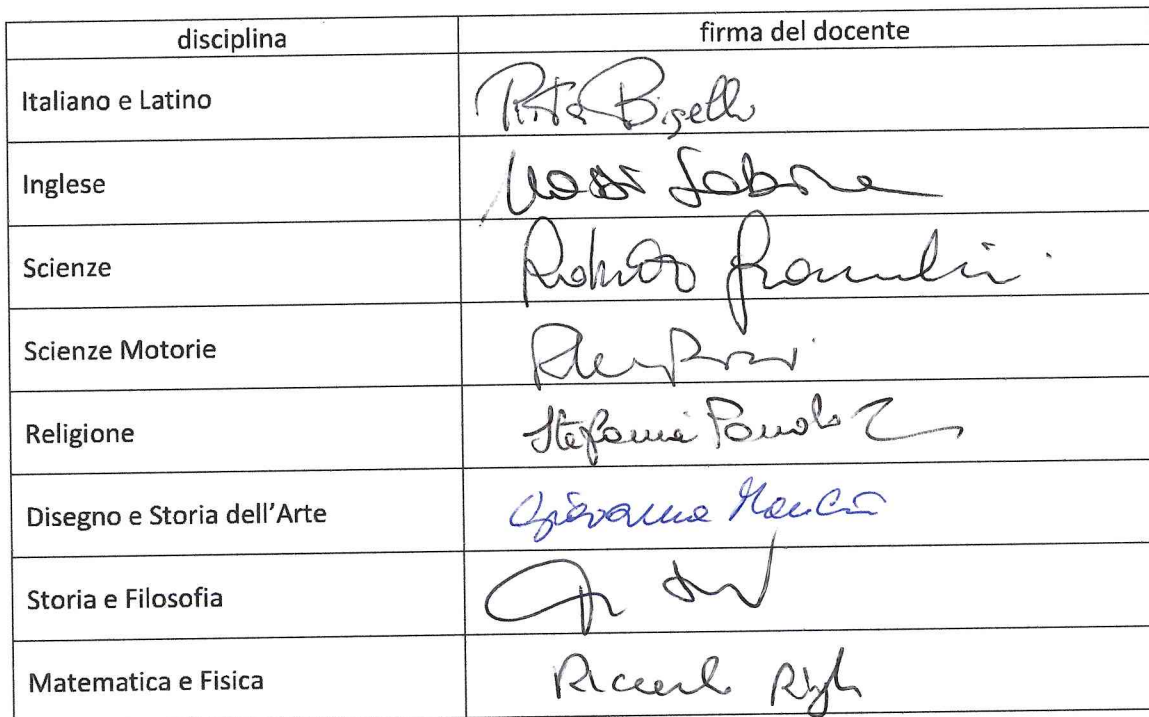 disciplina firma del docente
Italiano e Latino Rita Bigelli
Inglese Sabrina
Scienze Roberto
Scienze Motorie
Religione Stefania
Disegno e Storia dell'Arte Giovanna Mancini
Storia e Filosofia
Matematica e Fisica Riccardo Righi